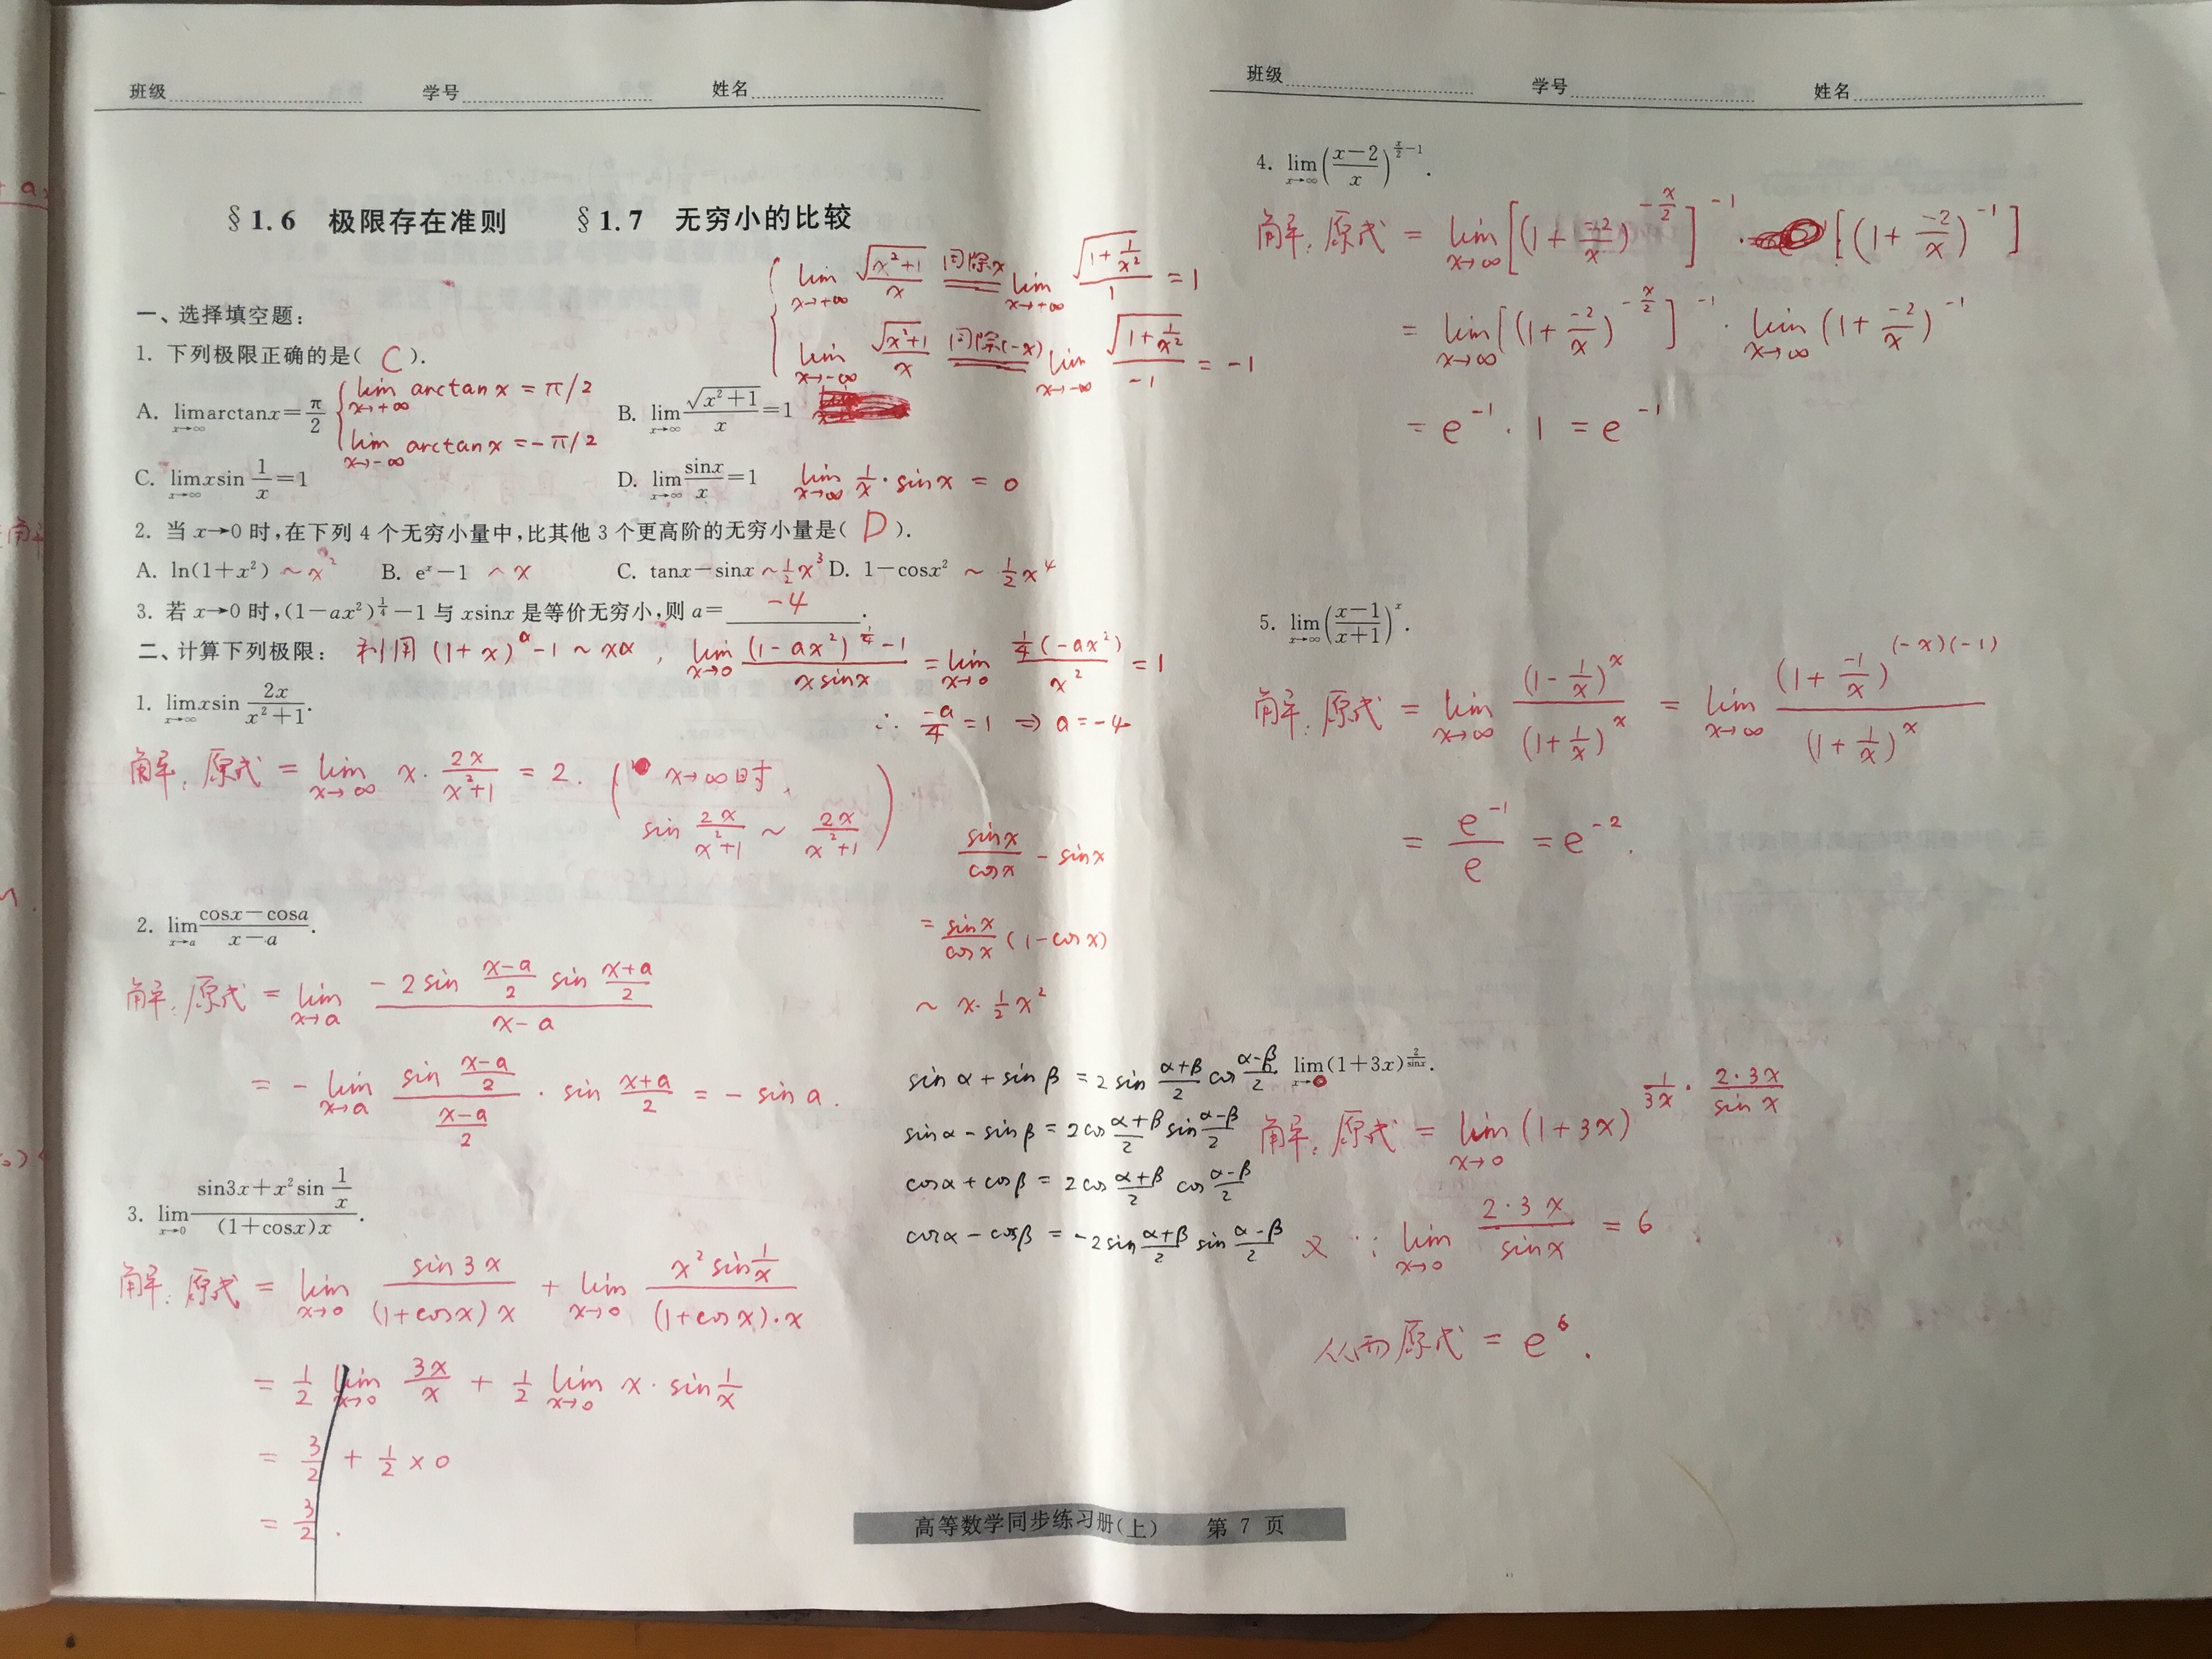 班级 学号 姓名
§1.6 极限存在准则 §1.7 无穷小的比较
一、选择填空题:
lim x→+∞ √(x²+1)/x 同除x lim x→+∞ √(1+1/x²)/1 = 1
lim x→-∞ √(x²+1)/x 同除(-x) lim x→-∞ √(1+1/x²)/-1 = -1
1. 下列极限正确的是( C ).
A. lim x→∞ arctanx=π/2
lim x→+∞ arctan x = π/2
lim x→-∞ arctan x = -π/2
B. lim x→∞ √(x²+1)/x=1
C. lim x→∞ xsin 1/x=1
D. lim x→∞ sinx/x=1 lim x→∞ 1/x · sin x = 0
2. 当 x→0 时,在下列 4 个无穷小量中,比其他 3 个更高阶的无穷小量是( D ).
A. ln(1+x²) ~ x² B. eˣ-1 ~ x C. tanx-sinx ~ 1/2 x³ D. 1-cosx² ~ 1/2 x⁴
3. 若 x→0 时,(1-ax²)^(1/4)-1 与 xsinx 是等价无穷小,则 a= -4 .
二、计算下列极限:
利用 (1+x)^α -1 ~ xα , lim x→0 ((1-ax²)^(1/4) -1)/(x sinx) = lim x→0 (1/4(-ax²))/x² = 1
∴ -a/4 = 1 ⇒ a = -4
1. lim x→∞ xsin 2x/(x²+1).
解: 原式 = lim x→∞ x · 2x/(x²+1) = 2. ( x→∞时,
sin 2x/(x²+1) ~ 2x/(x²+1) )
sinx/cosx - sinx
= sinx/cosx (1-cosx)
~ x· 1/2 x²
2. lim x→a (cosx-cosa)/(x-a).
解: 原式 = lim x→a (-2 sin (x-a)/2 sin (x+a)/2)/(x-a)
= - lim x→a (sin (x-a)/2)/((x-a)/2) · sin (x+a)/2 = - sin a .
sin α + sin β = 2 sin (α+β)/2 cos (α-β)/2
sin α - sin β = 2 cos (α+β)/2 sin (α-β)/2
cos α + cos β = 2 cos (α+β)/2 cos (α-β)/2
cos α - cos β = -2 sin (α+β)/2 sin (α-β)/2
3. lim x→0 (sin3x+x²sin 1/x)/((1+cosx)x).
解: 原式 = lim x→0 sin3x/((1+cosx)x) + lim x→0 (x² sin 1/x)/((1+cosx)·x)
= 1/2 lim x→0 3x/x + 1/2 lim x→0 x · sin 1/x
= 3/2 + 1/2 × 0
= 3/2 .
班级 学号 姓名
4. lim x→∞ ((x-2)/x)^(x/2-1).
解: 原式 = lim x→∞ [(1 + -2/x)^(-x/2)]^-1 · [(1 + -2/x)^-1]
= lim x→∞ [(1 + -2/x)^(-x/2)]^-1 · lim x→∞ (1 + -2/x)^-1
= e^-1 · 1 = e^-1
5. lim x→∞ ((x-1)/(x+1))^x.
解: 原式 = lim x→∞ (1-1/x)^x/(1+1/x)^x = lim x→∞ (1 + -1/x)^((-x)(-1))/(1+1/x)^x
= e^-1/e = e^-2 .
lim x→0 (1+3x)^(2/sinx).
解: 原式 = lim x→0 (1+3x)^(1/3x · 2·3x/sin x)
又 ∵ lim x→0 2·3x/sinx = 6
从而原式 = e⁶ .
高等数学同步练习册(上) 第 7 页